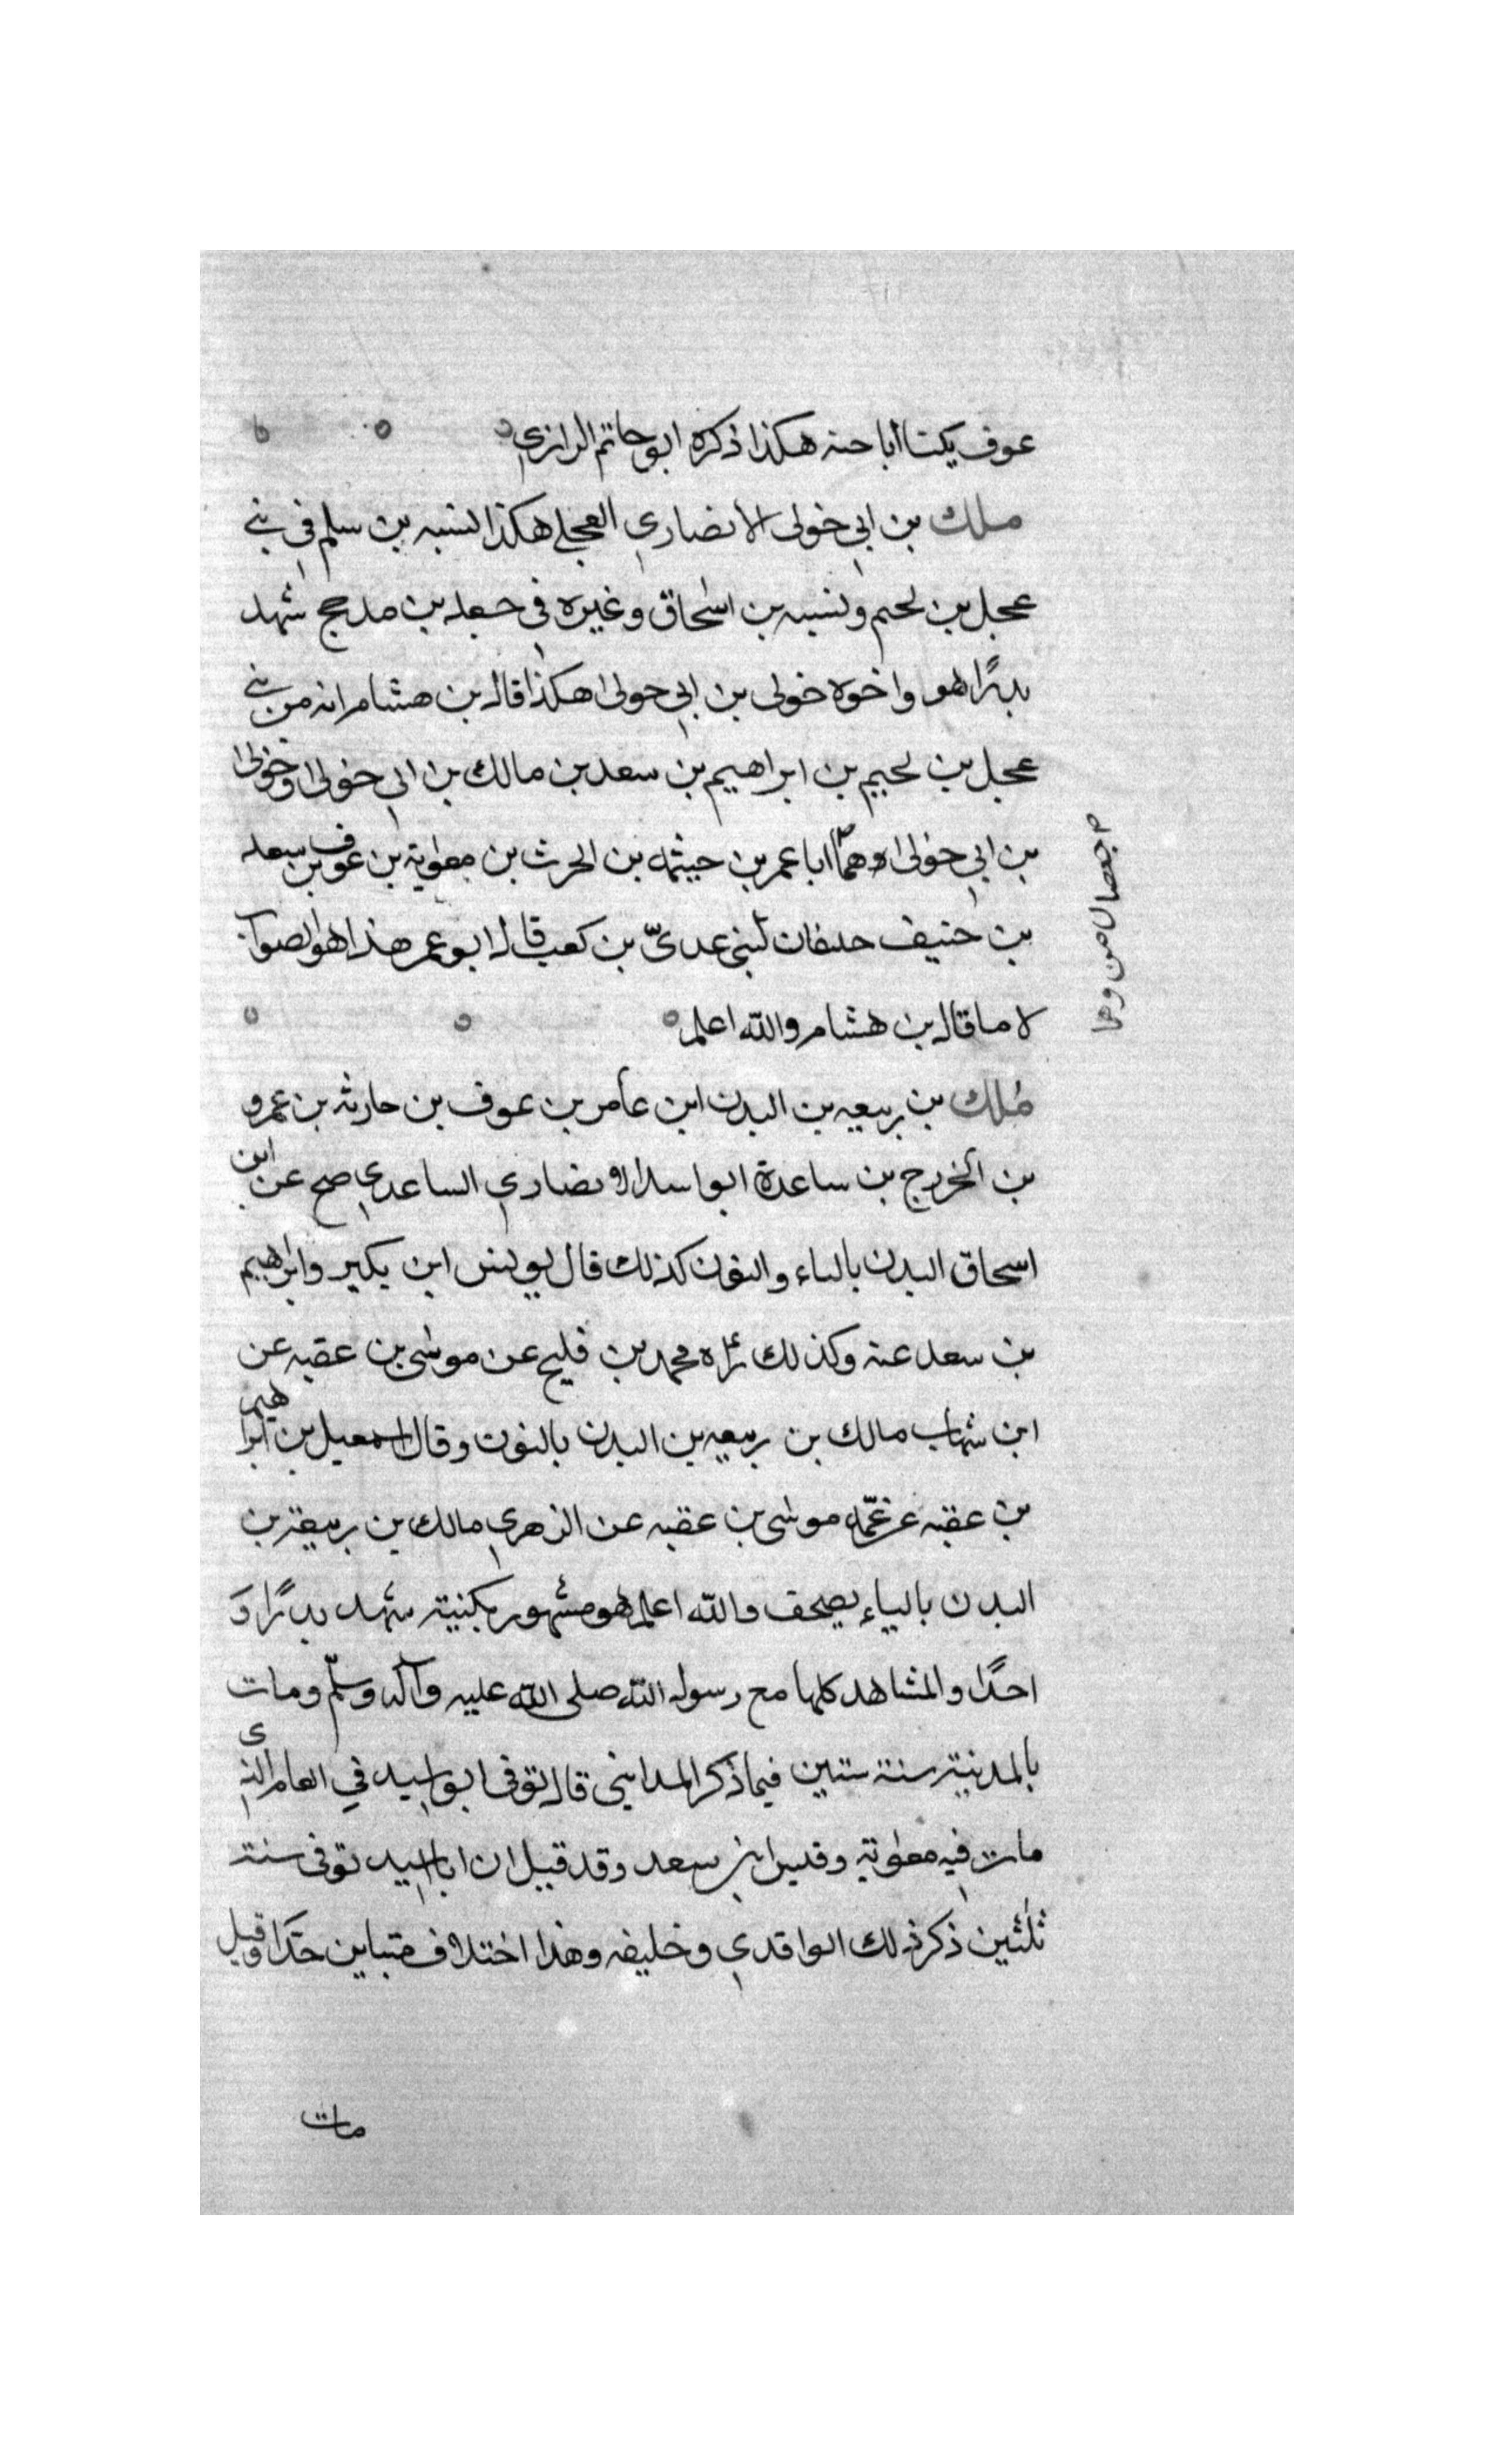 عوف يكنا أبا حنه هكذا ذكره ابو حاتم الرازي
ملك بن ابي خولى الانصاري العجلي هكذا نسبه بن سلم في بني
عجل بن لجيم ونسبه بن اسحاق وغيره في جعد بن مدحج شهد
بدرًا هو واخوه خولى بن ابي خولى هكذا قال بن هشام انه من بني
عجل بن لجيم بن ابراهيم بن سعد بن مالك بن ابي خولى وخولى
بن ابي خولى وهما ابا عمر بن حيثمه بن الحرث بن معوية بن عوف بن سعد
بن حنيف حليفان لبني عديّ بن كعب قال ابو عمر هذا هو الصواب
لا ما قال بن هشام والله اعلم
ملك بن ربيعه بن البدن ابن عامر بن عوف بن حارثه بن عمرو
بن الخزرج بن ساعدة ابو اسد الانصاري الساعدي صح عن ابن
اسحاق البدن بالباء والنون كذلك قال يونس ابن بكير وابراهيم
بن سعد عنه وكذلك رواه محمد بن فليح عن موسى بن عقبه عن
ابن شهاب مالك بن ربيعه بن البدن بالنون وقال اسمعيل بن ابراهيم
بن عقبه عن عمّه موسى بن عقبه عن الزهري مالك بن ربيعة بن
البدن بالياء يصحف والله اعلم هو مشهور بكنيته شهد بدرًا و
احدًا والمشاهد كلها مع رسول الله صلى الله عليه وآله وسلّم ومات
بالمدينة سنة ستين فيما ذكر المدايني قال توفى ابو اسيد في العام الذي
مات فيه معوية وقيس ابن سعد وقد قيل ان ابا اسيد توفى سنة
ثلثين ذكر ذلك الواقدي وخليفه وهذا اختلاف متباين جدا وقيل
مات